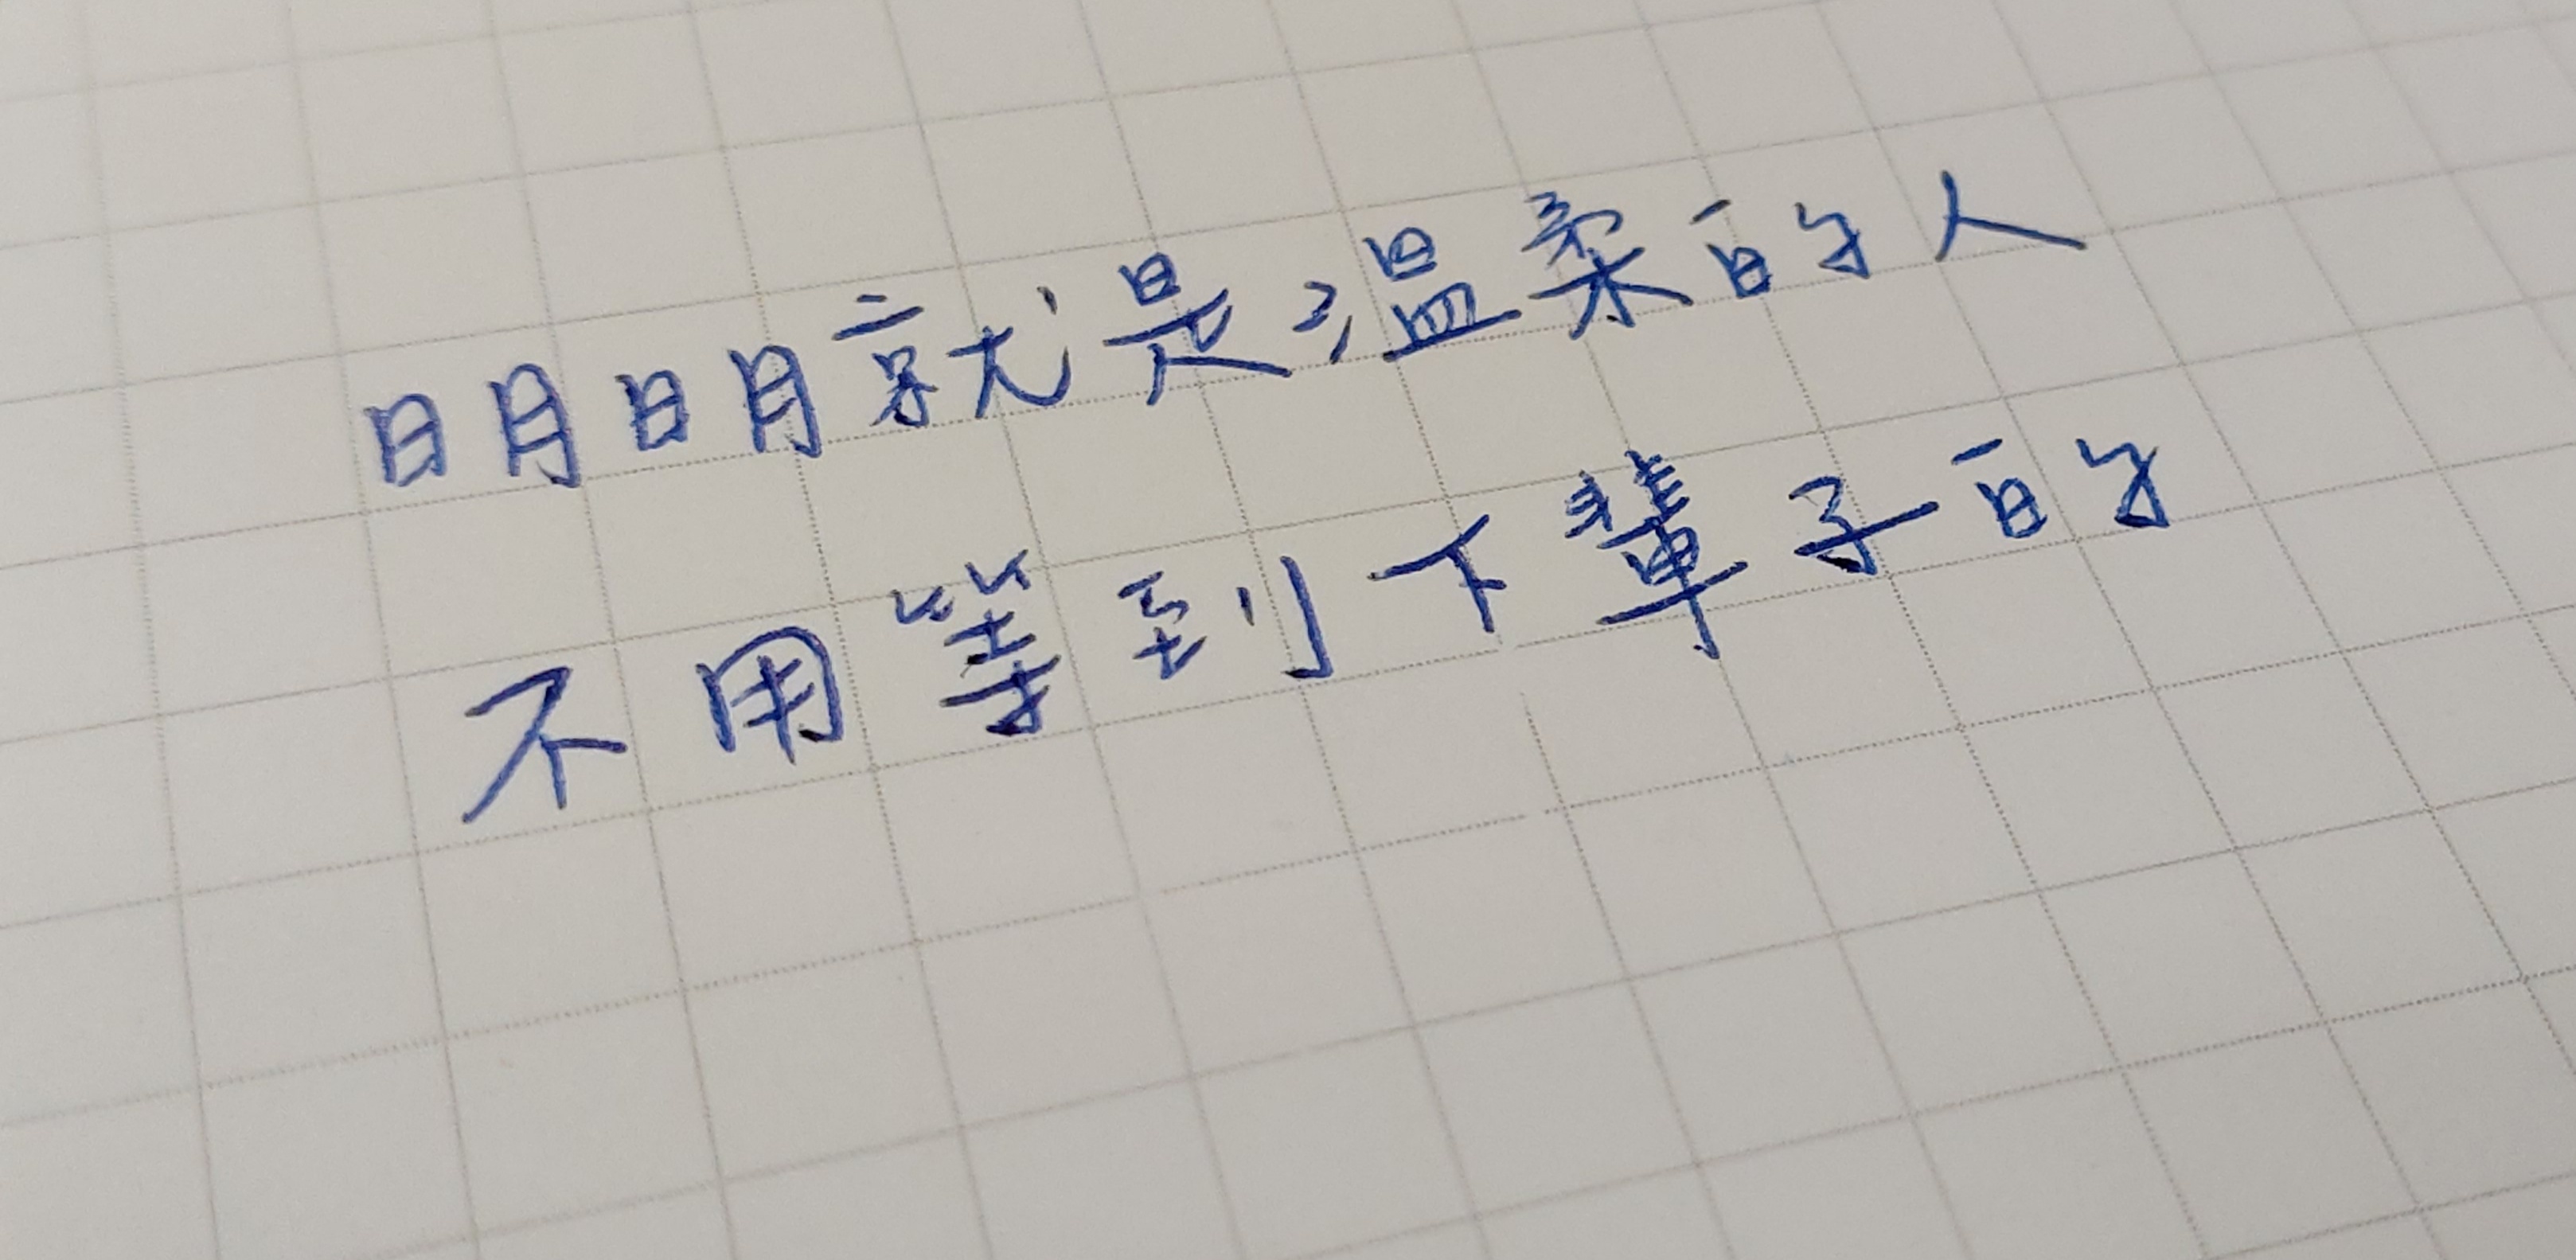 明明就是溫柔的人
不用等到下輩子的